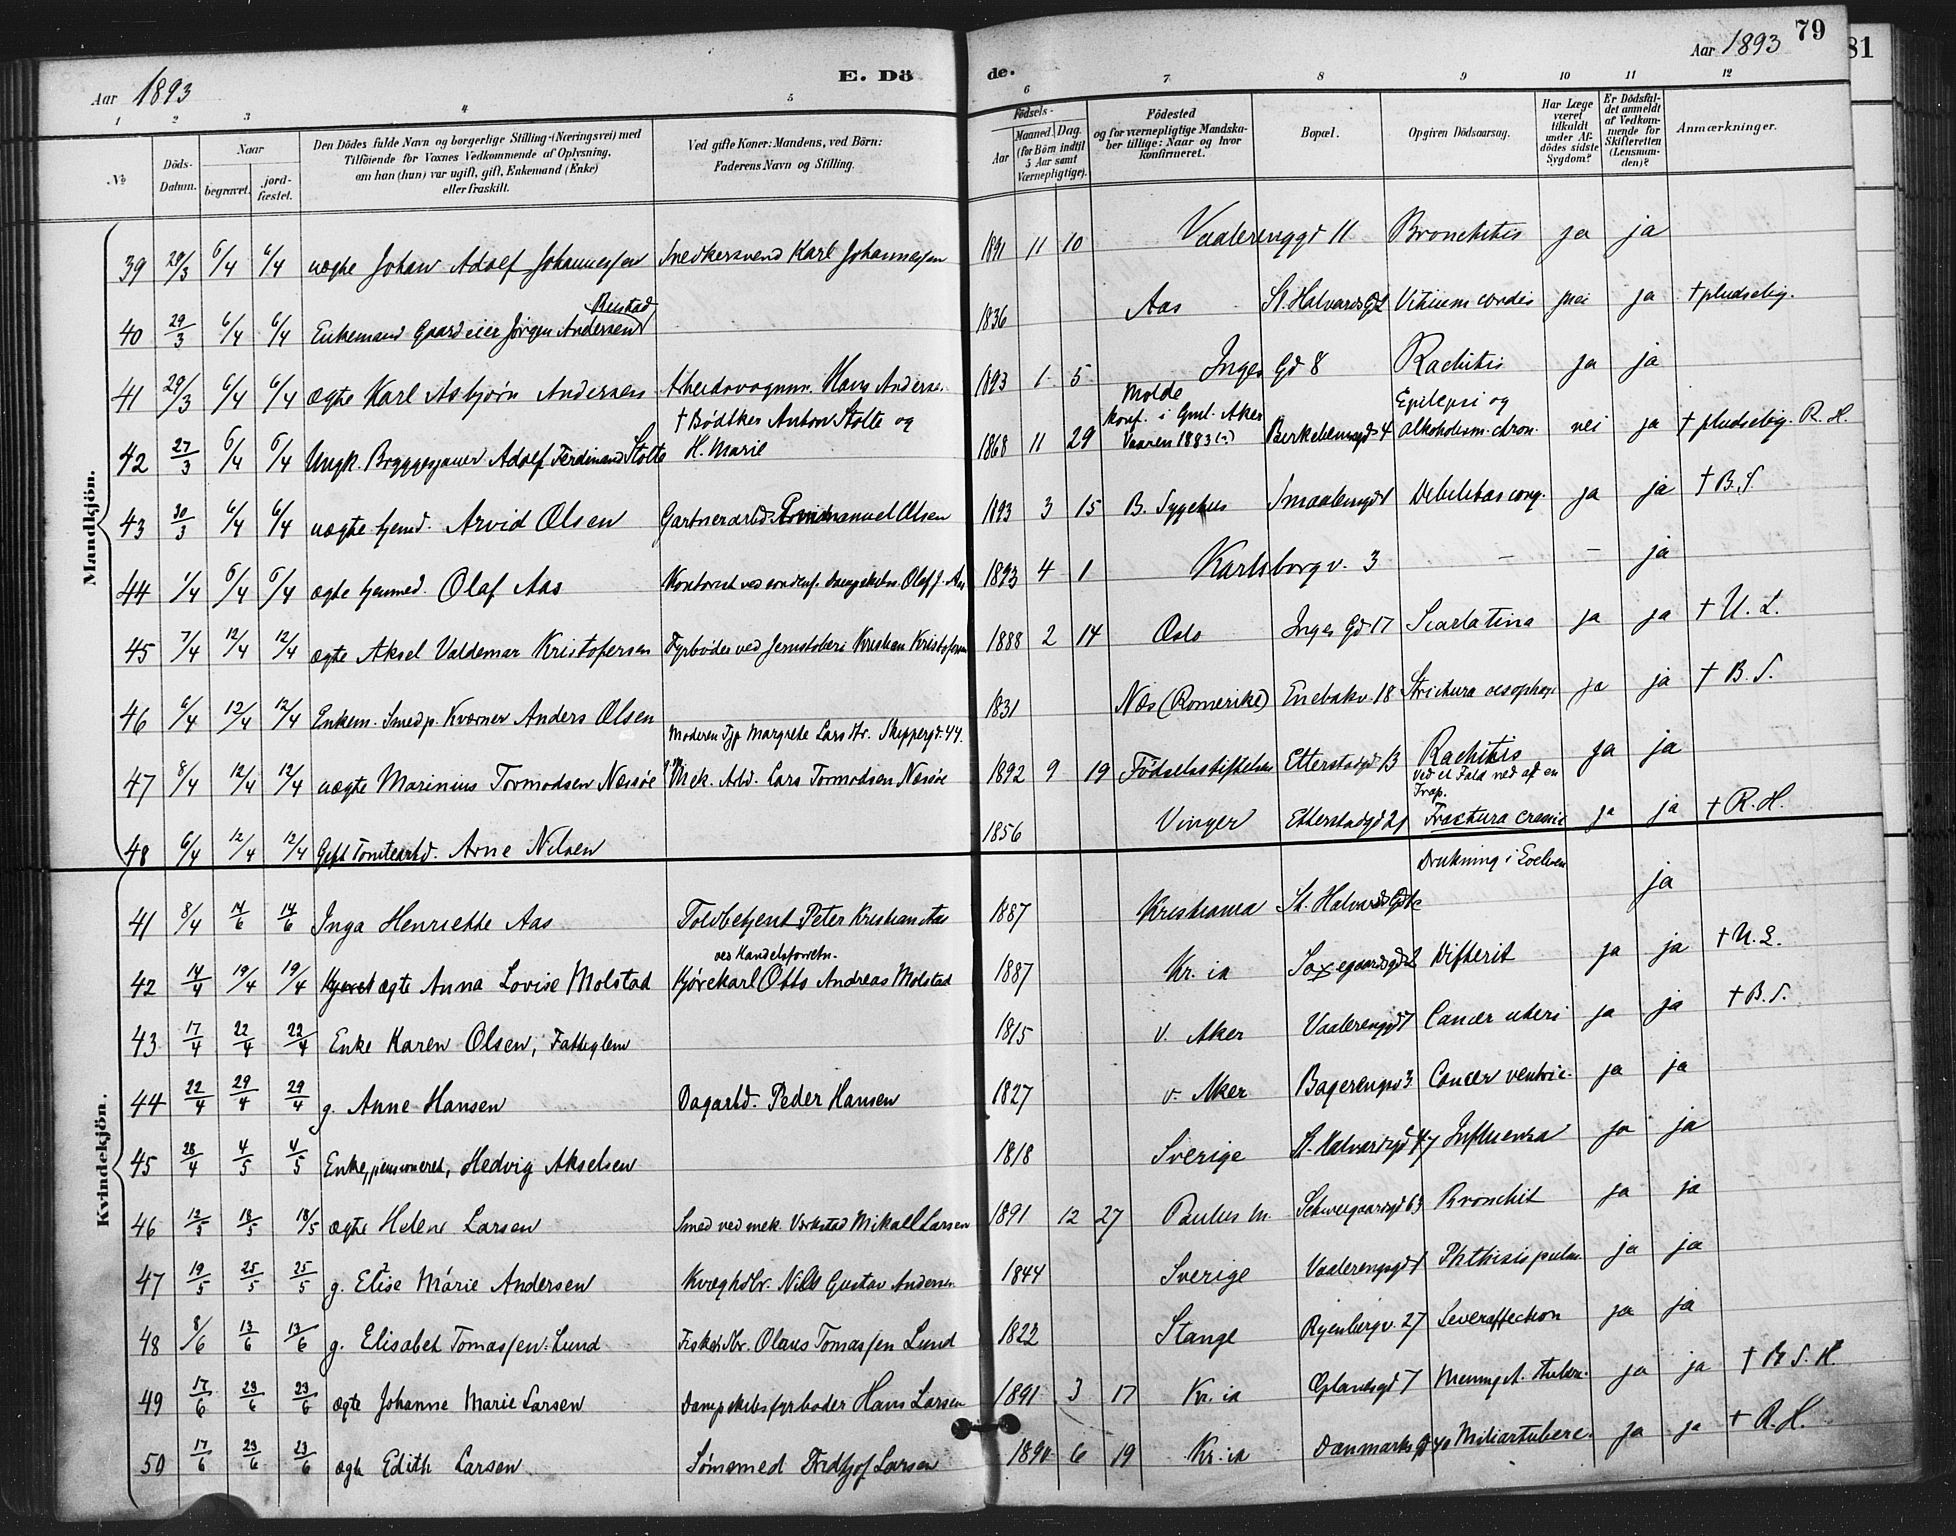 Aar 1893
E. Dö
de.
Aar 1893
79
81
1 2 3 4 5 6 7 8 9 10 11 12
№
Döds-Datum.
Naar
begravet.
jord-fæstet.
Den Dödes fulde Navn og borgerlige Stilling (Næringsvei) med
Tilföiende for Voxnes Vedkommende af Oplysning,
om han (hun) var ugift, gift, Enkemand (Enke)
eller fraskilt.
Ved gifte Koner: Mandens, ved Börn:
Faderens Navn og Stilling.
Födsels-
Aar
Maaned. Dag.
(for Börn indtil
5 Aar samt
Værnepligtige).
Födested
og for værnepligtige Mandska-
ber tillige: Naar og hvor
konfirmeret.
Bopæl.
Opgiven Dödsaarsag.
Har Læge
været
tilkaldt
under Af-
dödes sidste
Sygdom?
Er Dödsfal-
det anmeldt
af Vedkom-
mende for
Skifteretten
(Lensman-
den)?
Anmærkninger.
Mandkjön.
39 29/3 6/4 6/4 uægte Johan Adolf Johannessen Snedkersvend Karl Johannessen 1891 11 10 Vaalerenggd 11 Bronchitis ja ja
40 29/3 6/4 6/4 Enkemand Gaardeier Jörgen Andersen Rustad 1836 Aas St. Halvards Gd Vitium cordis nei ja † pludselig.
41 29/3 6/4 6/4 ægte Karl Asbjørn Andersen Arbeidsvognm. Hans Anderse. 1893 1 5 Inges Gd 8 Rachitis ja ja
42 27/3 6/4 6/4 Ungk. Bryggesjauer Adolf Ferdinand Stolte † Bødtker Anton Stolte og H. Marie 1868 11 29 Molde Konf. i Gml. Aker Vaaren 1883 Birkebeinergd 4 Epilepsi og alkoholism. chron. nei ja † pludselig. R. H.
43 30/3 6/4 6/4 uægte hjemd. Arvid Olsen Gartnerarbd. Emanuel Olsen 1893 3 15 B. Sygehus Smaalensgd Debilitas cong. ja ja † B. S.
44 1/4 6/4 6/4 ægte hjemmed. Olaf Aas Kontorist Olaf J. Aas 1893 4 1 Karlsborgv. 3 — — ja
45 7/4 12/4 12/4 ægte Aksel Valdemar Kristofersen Fyrbøder ved Jernstøberi Kristian Kristofersen 1888 2 14 Oslo Inges Gd 17 Scarlatina ja ja † U. L.
46 6/4 12/4 12/4 Enkem. Smed p. Kværner Anders Olsen 1831 Næs (Romerike) Enebakv. 18 Strictura oesophag. ja ja † B. S.
47 8/4 12/4 12/4 uægte Marinius Tormodsen Næssøe Moderen Tjp Margrete Larsdtr. Skippergd. 44. Mek. Arbd. Lars Tormodsen Næsøe 1892 9 19 Fødselsstiftelsen Etterstadgd 13 Rachitis ja ja
48 6/4 12/4 12/4 Gift Tomtearbd. Arne Nilsen 1856 Vinger Etterstadgd 21 Ved et Fald ned af en Trap. Fractura cranii ja ja † R. H.
Kvindekjön.
41 8/4 14/6 14/6 Inga Henriette Aas Toldbetjent Peter Kristian Aas 1887 Kristiania St. Halvards Gd Drukning i Loelven ja
42 14/4 19/4 19/4 ægte Anna Lovise Molstad ved Handelsforretn. Kjørekarl Otto Andreas Molstad 1887 Kr. ia Saxegaardsgd Difterit ja ja † U. L.
43 17/4 22/4 22/4 Enke Karen Olsen, Fattiglem 1815 V. Aker Vaalerenggd Cancer uteri ja ja † B. S.
44 22/4 29/4 29/4 g. Anne Hansen Dagarbd. Peder Hansen 1827 v. Aker Bagerengv 3 Cancer ventric. ja ja
45 28/4 4/5 4/5 Enke, pensioneret, Hedvig Akselsen 1818 Sverige St. Halvardsgd 47 Influenza ja ja
46 12/5 18/5 18/5 ægte Helene Larsen Smed ved mek. Verksted Mikael Larsen 1891 12 27 Paulus m. Schweigaardsgd 63 Bronchit ja ja
47 19/5 25/5 25/5 g. Elise Marie Andersen Kvæghdlr. Nils Gustav Andersen 1844 Sverige Vaalerenggd Phthisis pulm. ja ja
48 8/6 13/6 13/6 g. Elisabet Tomassen Lund Fiskehdlr. Olaus Tomassen Lund 1822 Stange Ryenbergv. 27 Leveraffection ja ja
49 17/6 23/6 23/6 ægte Johanne Marie Larsen Dampskibsfyrbøder Hans Larsen 1891 3 17 Kr. ia Oplandsgd 7 Mening. tuberc. ja ja † B. S. H.
50 17/6 23/6 23/6 ægte Edith Larsen Sømsmed Fridtjof Larsen 1890 6 19 Kr. ia Danmarks gd 40 Miliartuberc. ja ja † R. H.